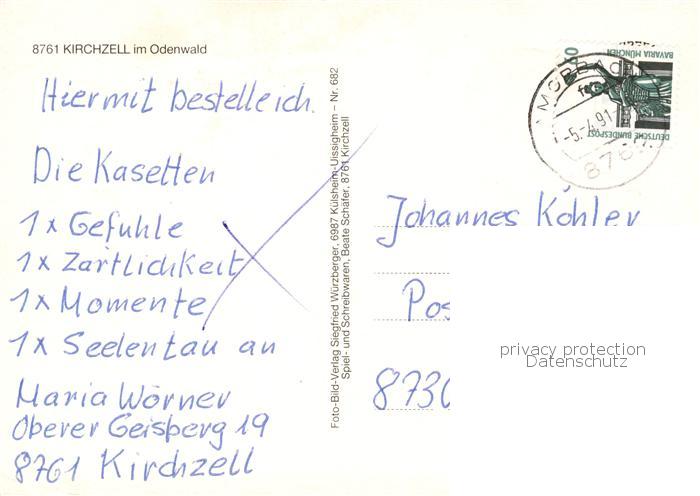 8761 KIRCHZELL im Odenwald
Hiermit bestelle ich.
Die Kasetten
1x Gefuhle
1x Zärtlichkeit
1x Momente
1x Seelentau an
Maria Wörner
Oberer Geisberg 19
8761 Kirchzell
Foto-Bild-Verlag Siegfried Würzberger, 6987 Külsheim-Uissigheim – Nr. 682
Spiel- und Schreibwaren, Beate Schäfer, 8761 Kirchzell
60
BAVARIA MÜNCHEN
DEUTSCHE BUNDESPOST
AMORBACH
-5.-4.91-
8762
Johannes Köhler
Pos
8730
privacy protection
Datenschutz